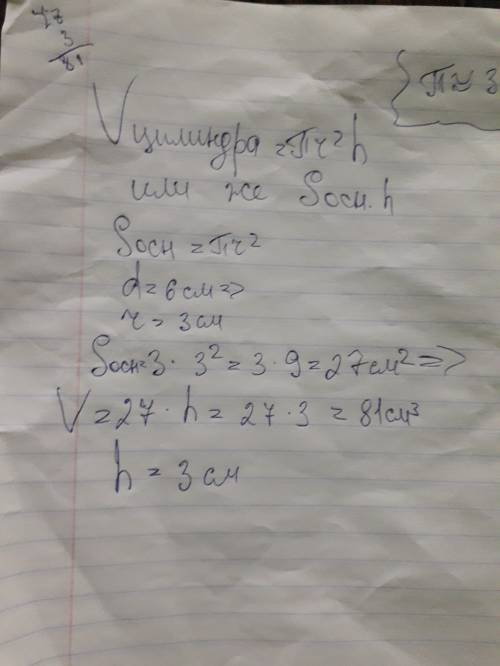 27
3
81
{ π ≈ 3
V цилиндра = πr²h
или же Sосн. h
Sосн = πr²
d = 6 см =>
r = 3 см
Sосн = 3 · 3² = 3 · 9 = 27 см² =>
V = 27 · h = 27 · 3 = 81 см³
h = 3 см